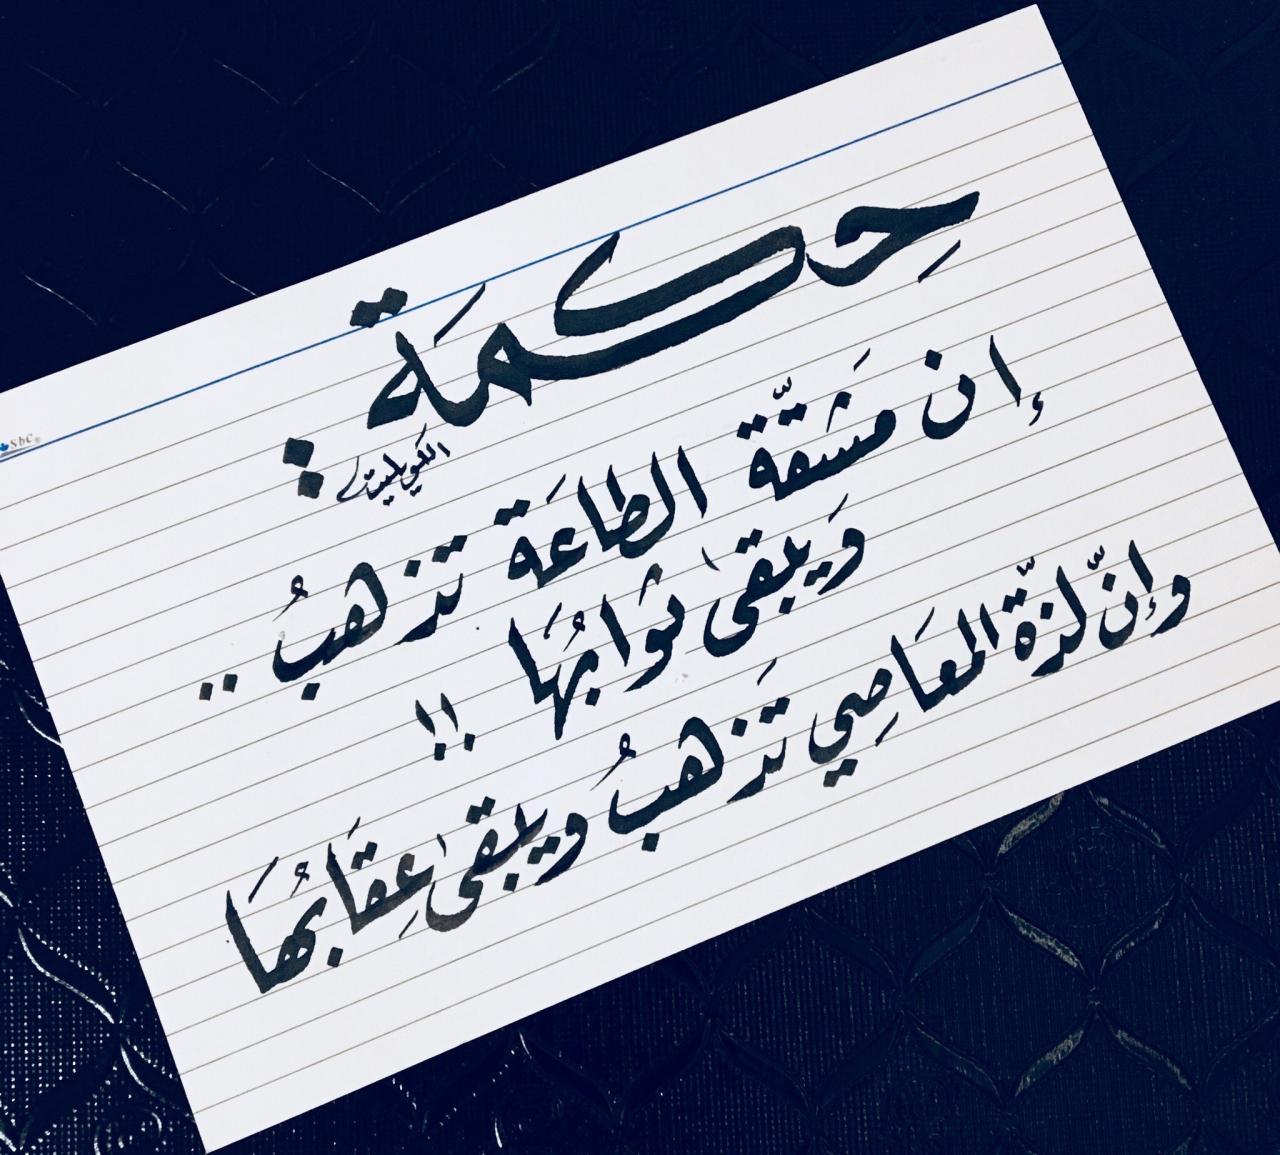 حِكمَة :
الكويليت
إن مَشقّة الطاعَة تذهبُ ..
وَيبقى ثوَابُهَا !!
وإنّ لذّة المعَاصِي تَذهبُ ويبقى عِقَابُهَا
sbc